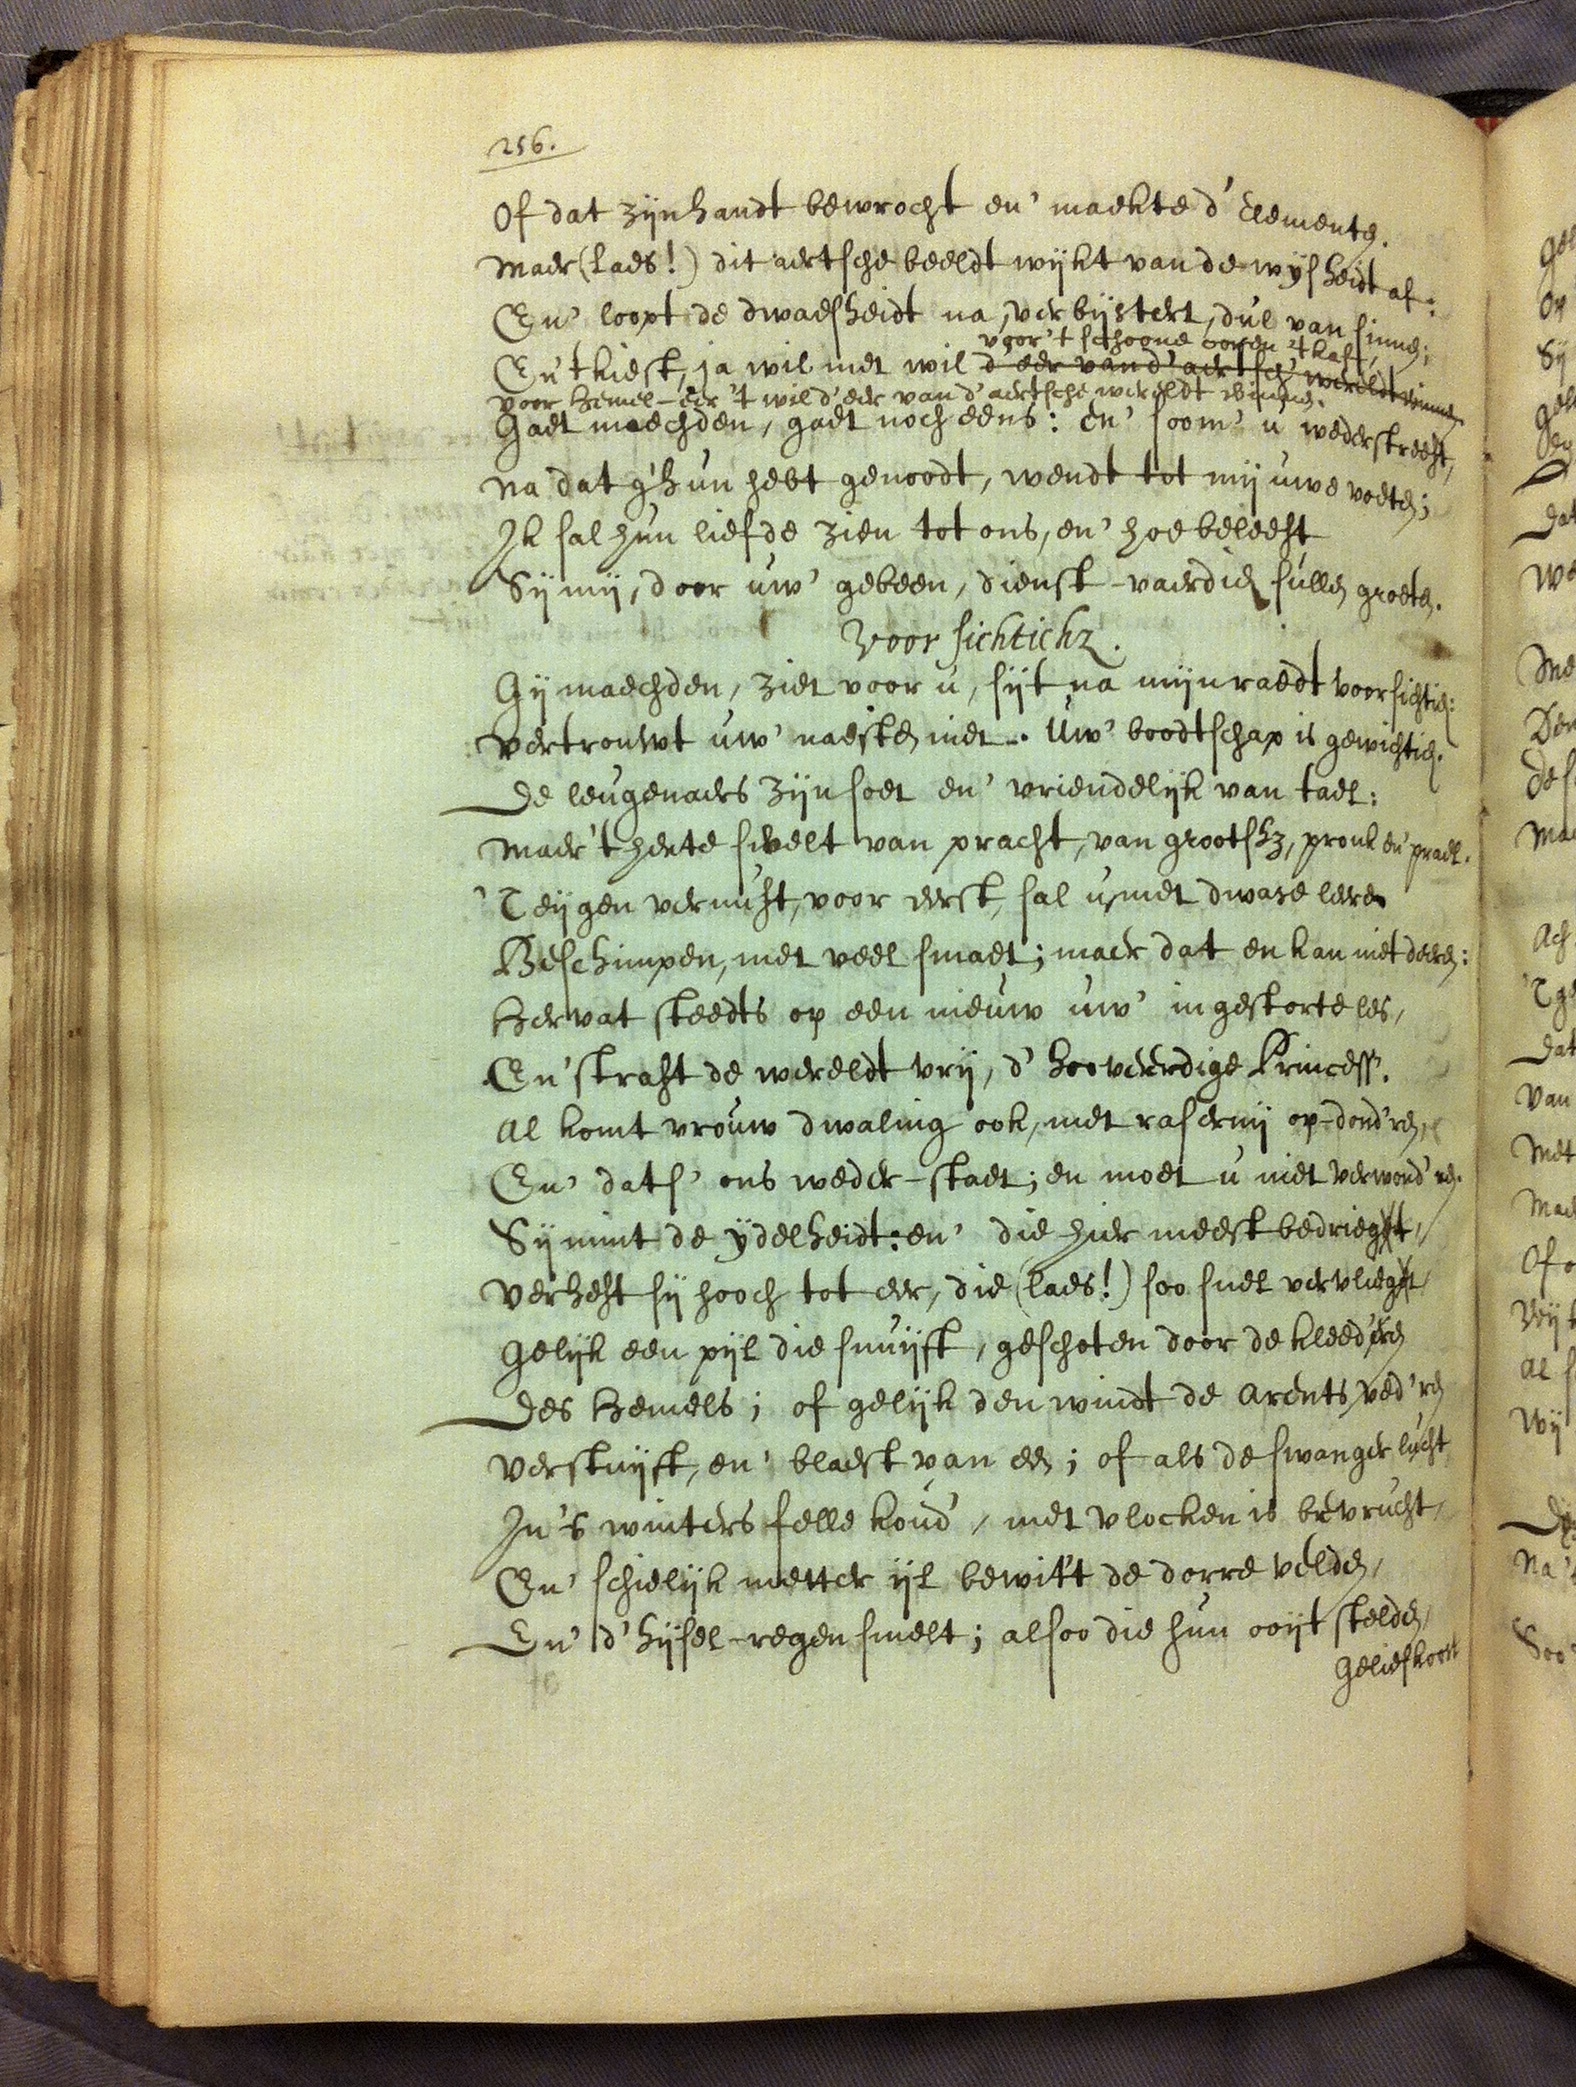 256.
Of dat zijn handt bewrocht en' maekte d' Elementen.
Maer (laes!) dit aertsche beeldt wijkt van de wijsheidt af:
En' loopt de dwaesheidt na, verbijstert, dul van sinnen;
voor 't schoone coren 't kaf,
En' 't kiest, ja wil met wil d'eer van d'aertsch' wereldt winnen
voor hemel-eer 't wil d'eer van d'aertsche wereldt winnen.
Gaet maechden, gaet noch eens: en' soom' u wederstreeft,
Na dat g' hun hebt genoodt, wendt tot mij uwe voeten;
Ik sal hun liefde zien tot ons, en' hoe beleeft
Sij mij, door uw' gebeen, dienst-vaerdich sullen groeten.
Voorsichtichz.
Gij maechden, ziet voor u, sijt na mijn raedt voorsichtich:
Vertrouwt uw' naesten niet. Uw' boodtschap is gewichtich.
De leugenaers zijn soet en' vriendelijk van tael:
Maer 't herte swelt van pracht, van grootshz, pronk en' prael.
'T eijgen vernuft, voor eerst, sal u, met dwaze leeren
Beschimpen, met veel smaet; maer dat en kan niet deeren:
Hervat steedts op een nieuw uw' ingestorte les,
En' straft de wereldt vrij, d' hooveerdige Princess'.
Al komt vrouw dwaling ook, met rasernij op-dond'ren,
En' dats' ons weder-staet; en moet u niet verwond'ren.
Sij mint de ijdelheidt: en' die hier meest bedriegt,
Verheft sij hooch tot eer, die (laes!) soo snel vervliegt,
Gelijk een pijl die snuijft, geschoten door de kleed'ren
Des hemels; of gelijk den windt de arents ved'ren
Verstuijft, en' blaest van een; of als de swanger lucht
In 's winters felle koud', met vlocken is bevrucht,
En' schielijk metter ijl bewitt de dorre velden,
En' d' hijsel-regen smelt; alsoo die hun ooijt stelden,
Geliefkoost